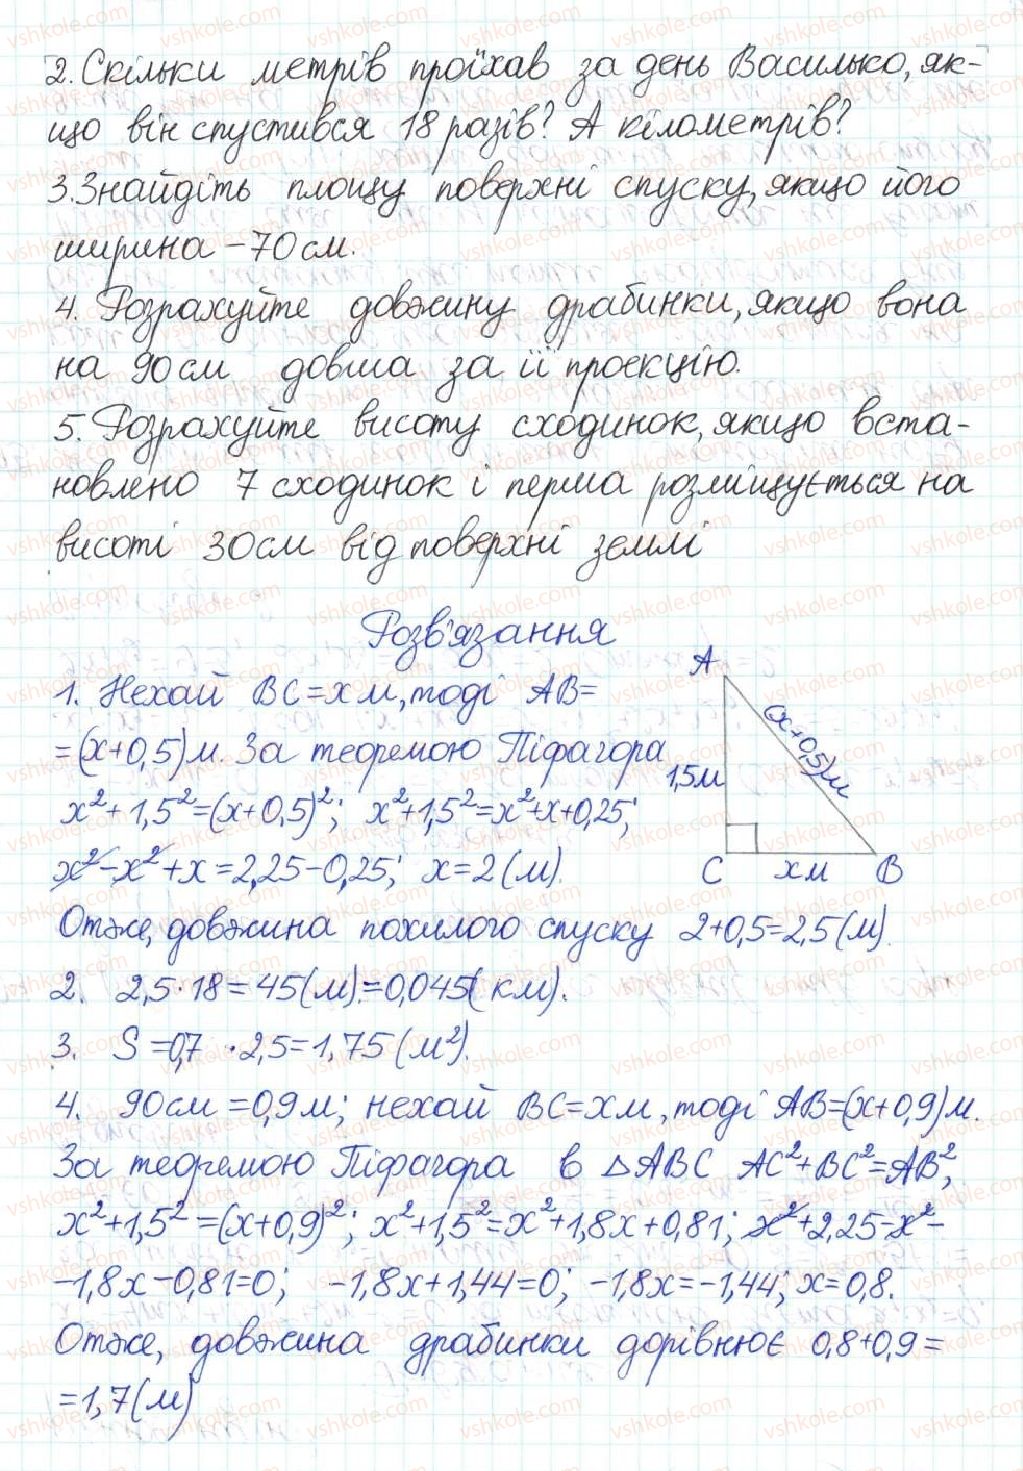 2. Скільки метрів проїхав за день Василько, як-
що він спустився 18 разів? А кілометрів?
3. Знайдіть площу поверхні спуску, якщо його
ширина – 70 см.
4. Розрахуйте довжину драбинки, якщо вона
на 90 см довша за її проекцію.
5. Розрахуйте висоту сходинок, якщо вста-
новлено 7 сходинок і перша розміщується на
висоті 30 см від поверхні землі
Розв'язання
1. Нехай BC = x м, тоді AB =
= (x+0,5) м. За теоремою Піфагора
x²+1,5²=(x+0,5)²; x²+1,5²=x²+x+0,25;
x²-x²+x=2,25-0,25; x=2 (м).
A
(x+0,5) м
1,5 м
C x м B
Отже, довжина похилого спуску 2+0,5=2,5 (м).
2. 2,5·18=45 (м).=0,045 (км).
3. S=0,7 · 2,5=1,75 (м²).
4. 90 см = 0,9 м; нехай BC = x м, тоді AB=(x+0,9) м.
За теоремою Піфагора в △ABC AC²+BC²=AB²,
x²+1,5²=(x+0,9)²; x²+1,5²=x²+1,8x+0,81; x²+2,25-x²-
-1,8x-0,81=0; -1,8x+1,44=0; -1,8x=-1,44; x=0,8.
Отже, довжина драбинки дорівнює 0,8+0,9=
=1,7 (м)
vshkole.com